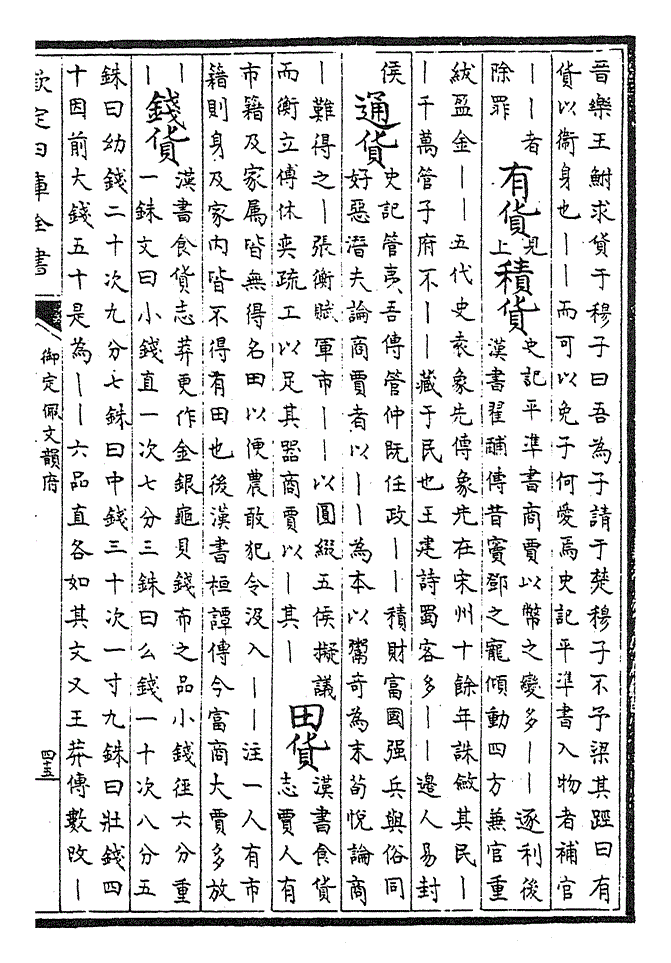 晉樂王鮒求貨于穆子曰吾為子請于楚穆子不予梁其踁曰有
貨以衞身也｜｜而可以免子何愛焉史記平準書入物者補官
｜｜者
除罪
有貨
見
上
積貨
史記平準書商賈以幣之變多｜｜逐利後
漢書翟酺傳昔竇鄧之寵傾動四方兼官重
紱盈金｜｜五代史袁象先傳象先在宋州十餘年誅斂其民｜
｜千萬管子府不｜｜藏于民也王建詩蜀客多｜｜邊人易封
侯
通貨
史記管夷吾傳管仲既任政｜｜積財富國强兵與俗同
好惡潛夫論商賈者以｜｜為本以鬻奇為末荀悅論商
｜難得之｜張衡賦軍市｜｜以圜綴五侯擬議
而衡立傅休奕疏工以足其器商賈以｜其｜
田貨
漢書食貨
志賈人有
市籍及家屬皆無得名田以便農敢犯令沒入｜｜注一人有市
籍則身及家內皆不得有田也後漢書桓譚傳今富商大賈多放
｜
｜
錢貨
漢書食貨志莽更作金銀龜貝錢布之品小錢徑六分重
一銖文曰小錢直一次七分三銖曰么錢一十次八分五
銖曰幼錢二十次九分七銖曰中錢三十次一寸九銖曰壯錢四
十因前大錢五十是為｜｜六品直各如其文又王莽傳數改｜
欽定四庫全書
御定佩文韻府
四五